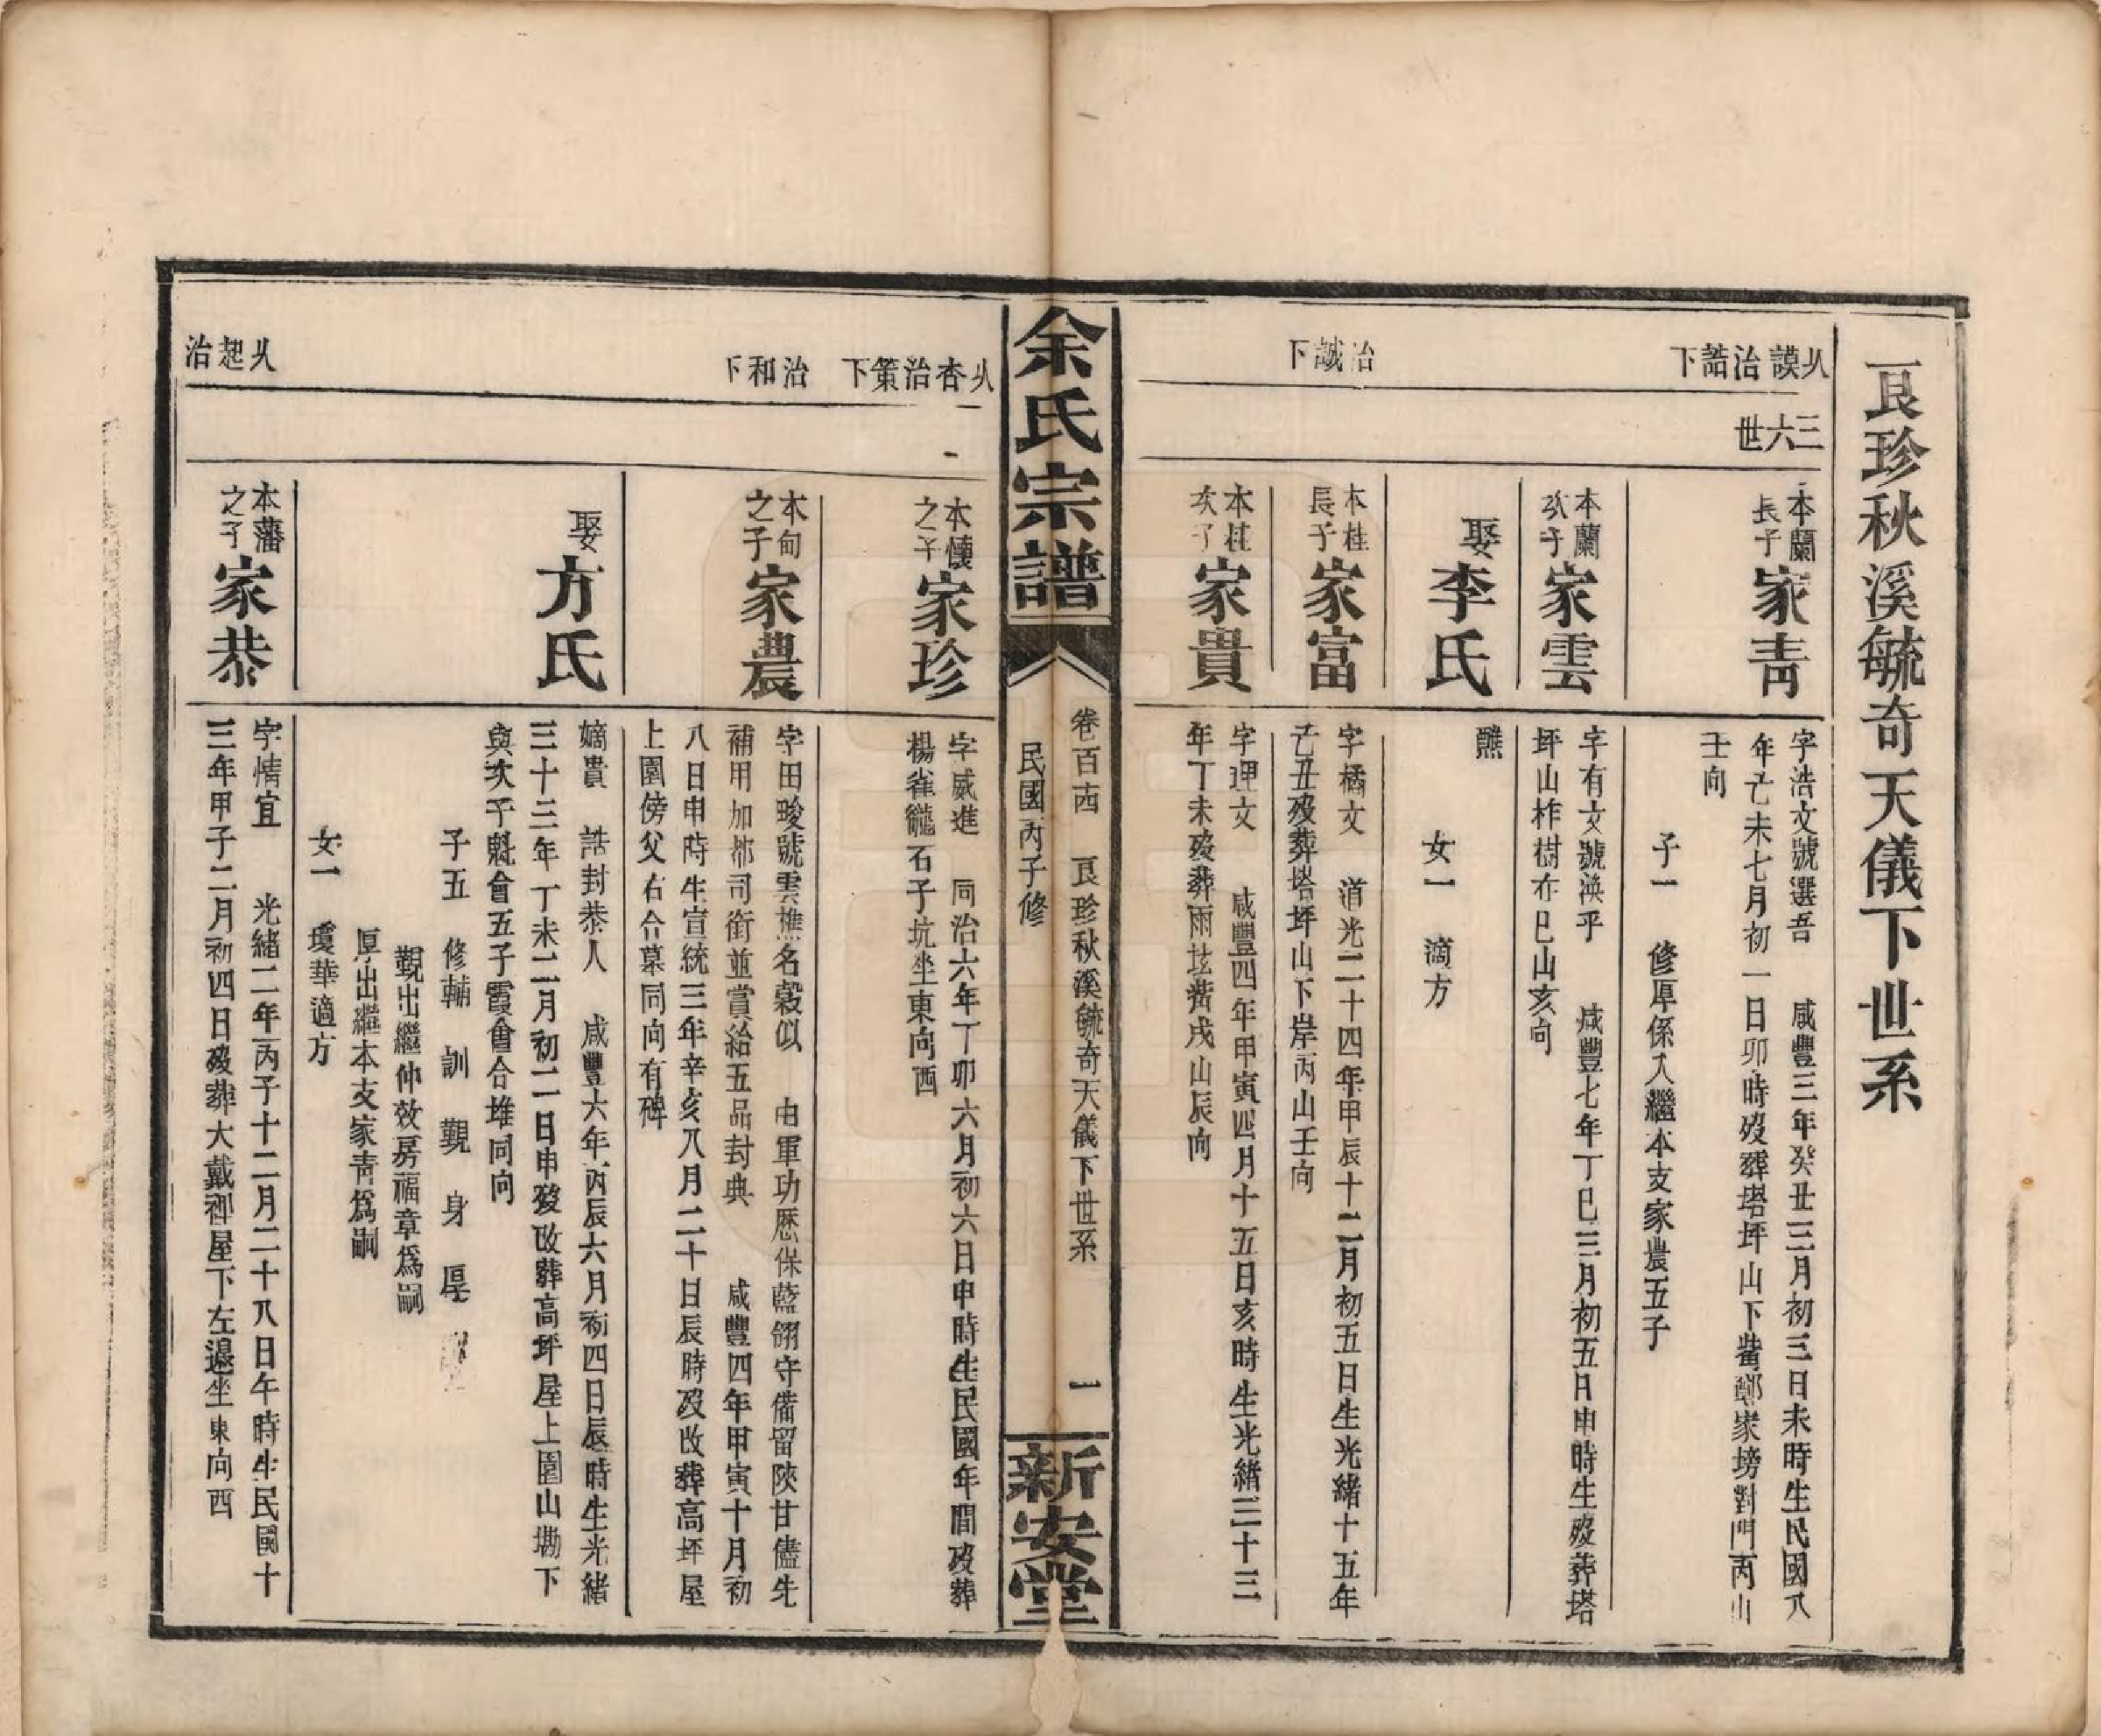 艮珍秋溪毓奇天儀下世系
乆謨治誥下
治誠下
三六世
本蘭長子家青
字浩文號選吾 咸豐三年癸丑三月初三日未時生民國八
年己未七月初一日卯時歿葬塔坪山下㘭鄭家塝對門丙山
壬向
子一 修厚係入繼本支家農五子
本蘭次子家雲
字有文號渙乎 咸豐七年丁巳三月初五日申時生歿葬塔
坪山柞樹㐲巳山亥向
娶李氏
醮
女一 適方
本桂長子家富
字橘文 道光二十四年甲辰十二月初五日生光緒十五年
己丑歿葬塔坪山下岸丙山壬向
本桂次子家貴
字理文 咸豐四年甲寅四月十五日亥時生光緒三十三
年丁未歿葬雨㘭戌山辰向
余氏宗譜
卷百西 艮珍秋溪毓奇天儀下世系 一
民國丙子修
新安堂
乆杏治策下
治和下
乆起治
本懷之子家珍
字威進 同治六年丁卯六月初六日申時生民國年間歿葬
楊雀籠石子坑坐東向西
本甸之子家農
字田畯號雲樵名榖似 由軍功歷保藍翎守備留陝甘儘先
補用加都司銜並賞給五品封典 咸豐四年甲寅十月初
八日申時生宣統三年辛亥八月二十日辰時歿改葬高坪屋
上園傍父右合墓同向有碑
娶方氏
嫡貴 誥封恭人 咸豐六年丙辰六月初四日辰時生光緒
三十三年丁未二月初二日申歿改葬高坪屋上園山墈下
與次子魁會五子霞會合堆同向
子五 修輔 訓 觀 身 厚
觀出繼仲效房福章爲嗣
厚出繼本支家青爲嗣
女一 瓊華適方
本藩之子家恭
字情宜 光緒二年丙子十二月二十八日午時生民國十
三年甲子二月初四日歿葬大戴衖屋下左邊坐東向西